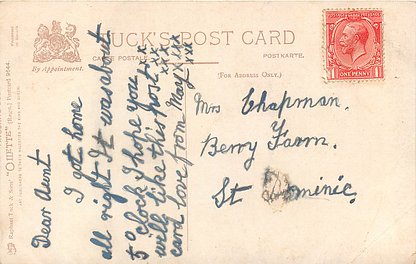 TUCK'S POST CARD
By Appointment.
CARTE POSTALE
POSTKARTE.
(FOR ADDRESS ONLY.)
Raphael Tuck & Sons' "OILETTE" [Regd.] Postcard 9544.
Dear Aunt
I got home
all right It was about
5 o'clock I hope you
will like this post
card love from May xxx
Mrs Chapman.
Berry Farm.
St Dominic.
ONE PENNY
1 1